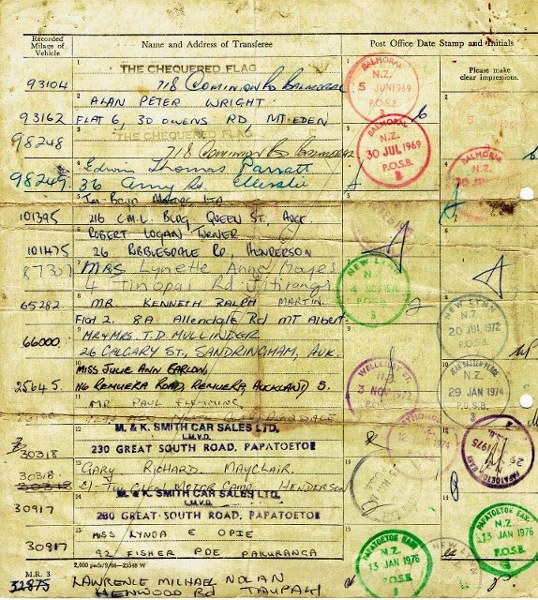 Recorded Milage of Vehicle
Name and Address of Transferee
Post Office Date Stamp and Initials
Please make clear impressions.
1
THE CHEQUERED FLAG
93104
718 Dominion Rd Balmoral
2
ALAN PETER WRIGHT
93162
FLAT 6, 30 OWENS RD MT. EDEN
3
THE CHEQUERED FLAG
98248
718 Dominion Rd
4
Edwin Thomas Parratt
98249
36
Ellerslie
5
LTD
101395
216 C.M.L. BLDG, QUEEN ST, AUCK.
6
ROBERT LOGAN TURNER
101475
26 RIBBLESDALE RD, HENDERSON
7
87307
MRS Lynette Anne Hayes
4 Tinopai Rd Titirangi
8
MR. KENNETH RALPH MARTIN.
65282
Flat 2. 8A Allendale Rd MT Albert
9
MR & MRS T.D. MULLINDER
66000
26 CALGARY ST, SANDRINGHAM, AUK.
10
MISS JULIE ANN
25645
116 REMUERA ROAD, REMUERA, AUCKLAND 5.
11
MR PAUL FLEMMING
12
M. & K. SMITH CAR SALES LTD.
L.M.V.D.
30318
230 GREAT SOUTH ROAD, PAPATOETOE
13
GARY RICHARD MAYCLAIR
30318
MOTOR CAMP HENDERSON
14
M. & K. SMITH CAR SALES LTD.
L.M.V.D.
30917
230 GREAT SOUTH ROAD, PAPATOETOE
15
MISS LYNDA E OPIE
30917
92 FISHER PDE PAKURANGA
M.R. 3
32875
LAWRENCE MICHAEL NOLAN
HENWOOD RD TAUPAKI
BALMORAL
N.Z.
5 JUN 1969
P.O.S.B.
BALMORAL
N.Z.
30 JUL 1969
P.O.S.B.
3
BALMORAL
N.Z.
NEW LYNN
N.Z.
P.O.S.B.
3
NEW LYNN
N.Z.
20 JUL 1972
P.O.S.B.
WELLESLEY ST.
3 NOV 1972
P.O.S.B.
N.Z.
29 JAN 1974
P.O.S.B.
1975
PAPATOETOE EAST
N.Z.
13 JAN 1976
P.O.S.B.
PAPATOETOE EAST
N.Z.
13 JAN 1976
P.O.S.B.
NEW LYNN